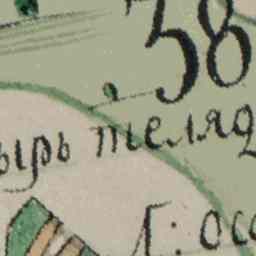 38
ырь теляд
Г: осо